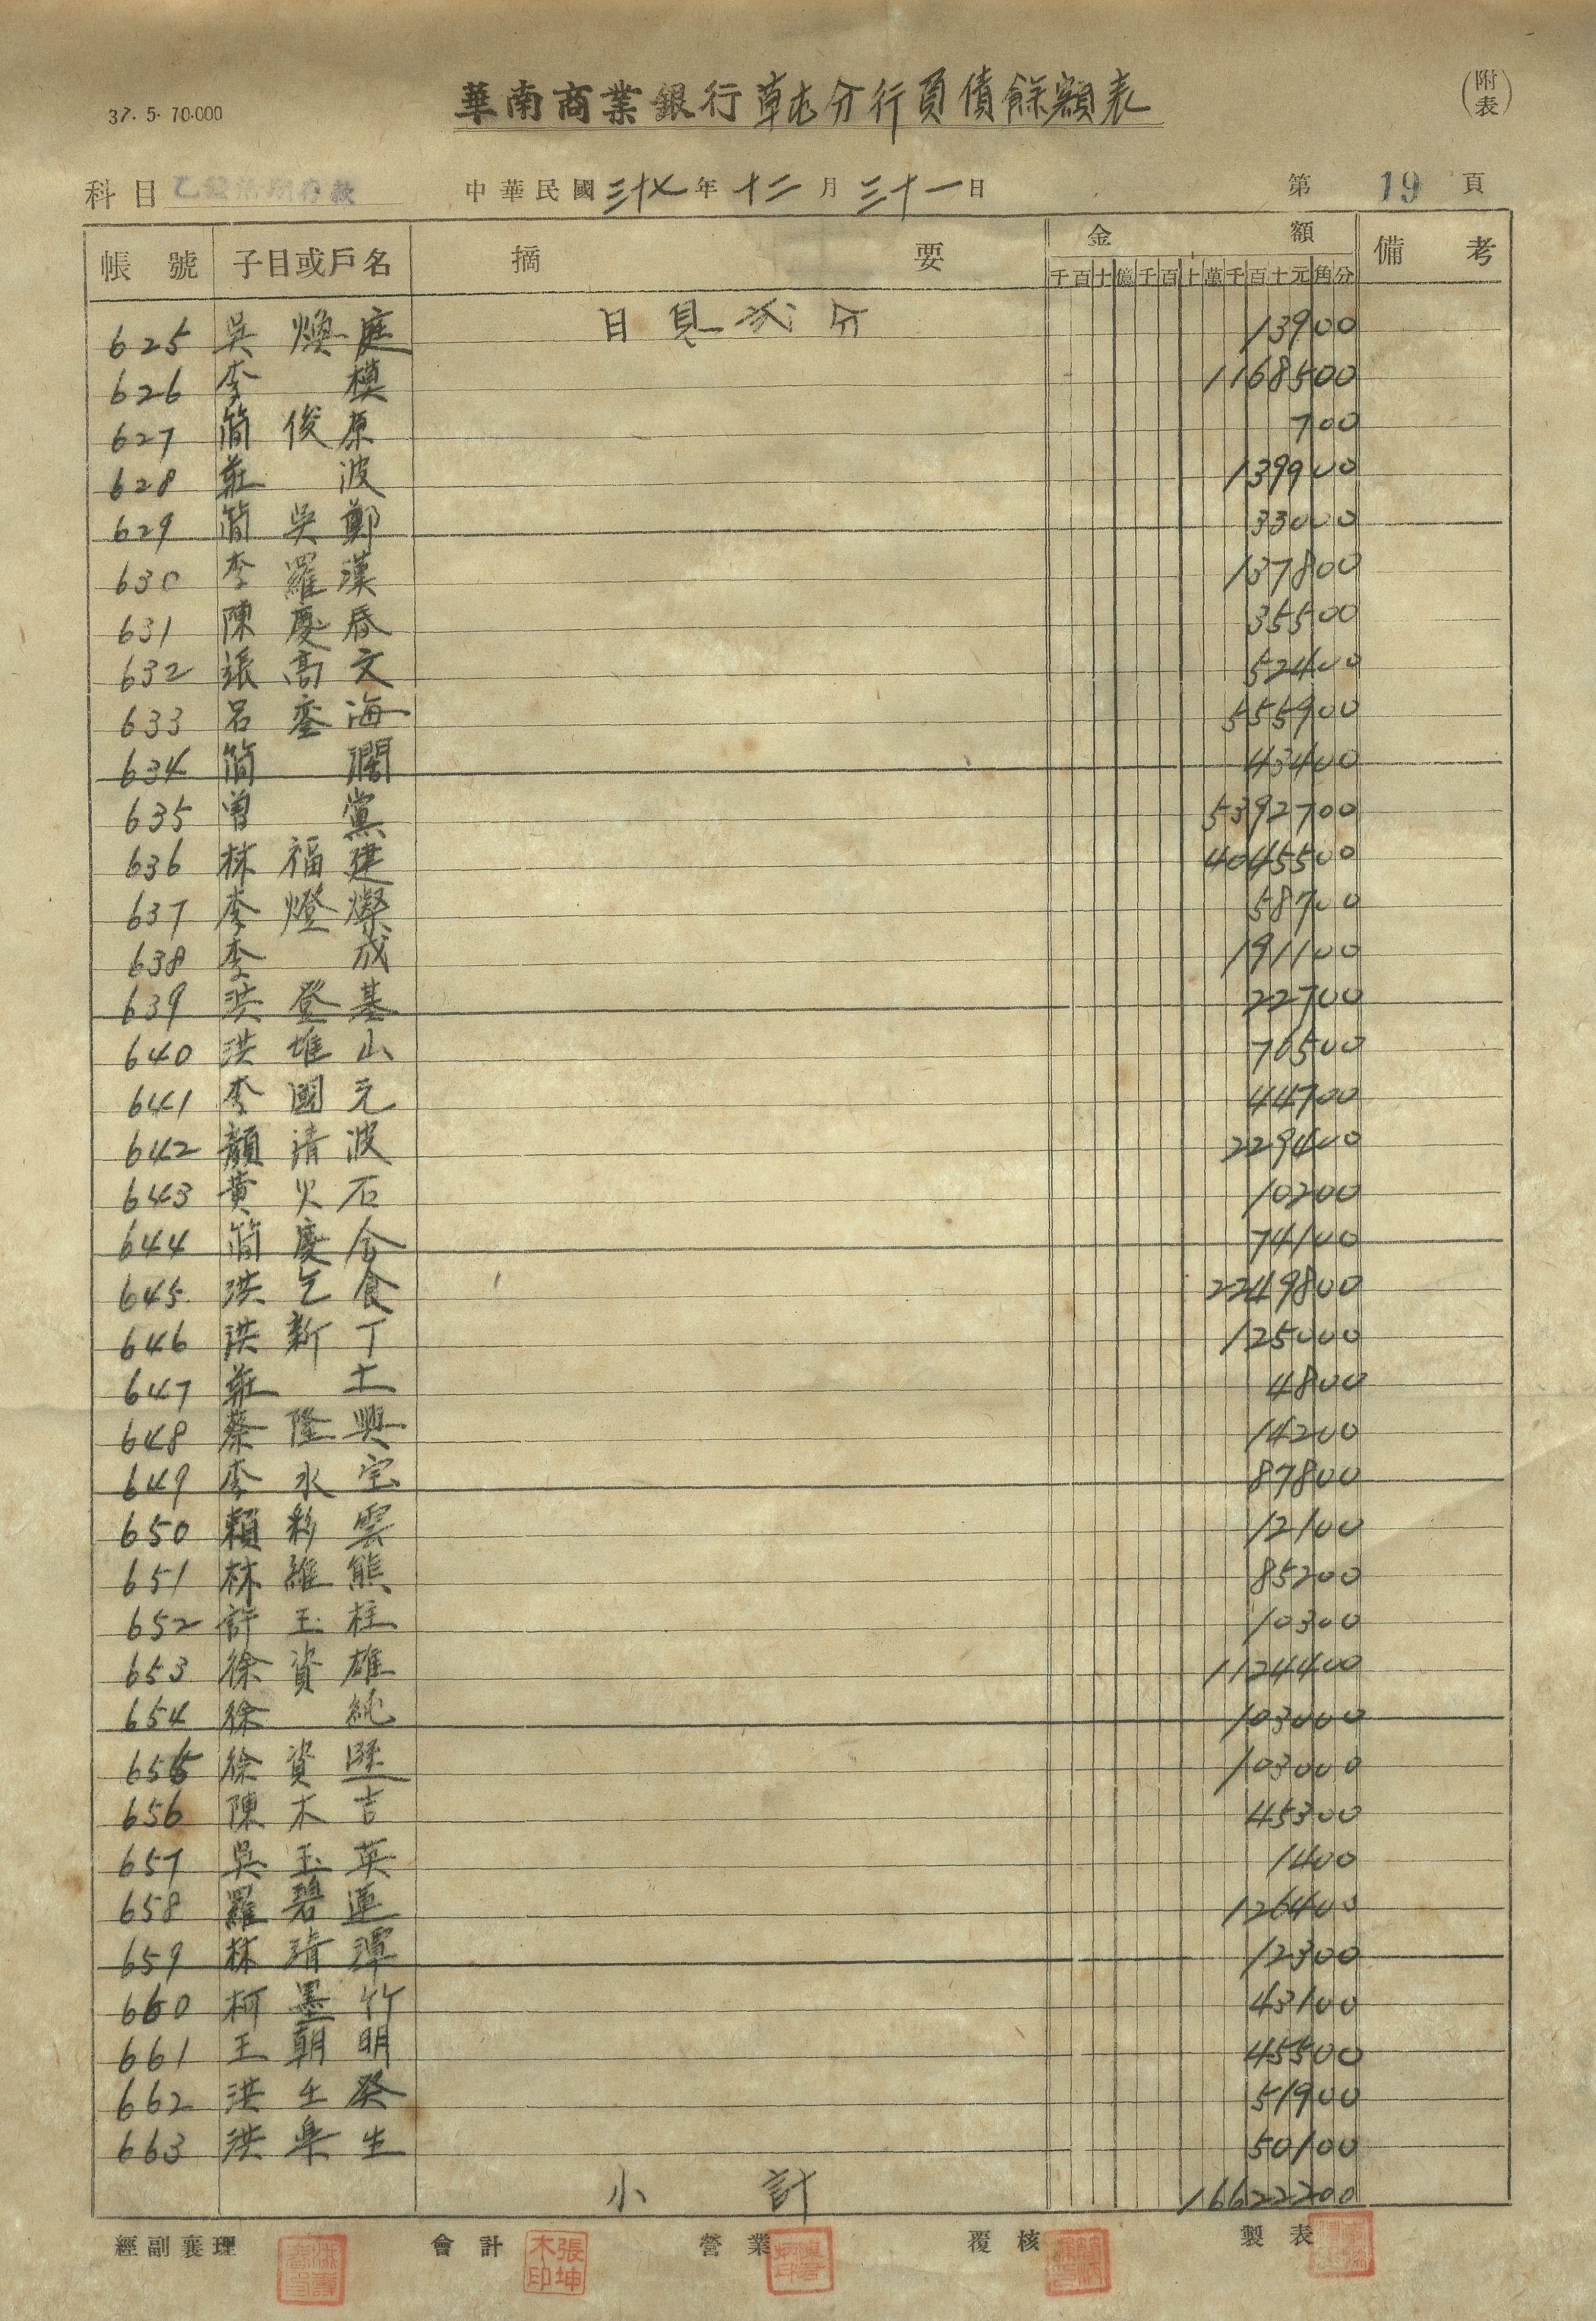 37. 5. 70.000
華南商業銀行草屯分行負債餘額表
(附表)
科目 乙種活期存款 中華民國三十七年十二月三十一日 第 19 頁
帳號 子目或戶名 摘要 金額 備考
千百十億千百十萬千百十元角分
625 吳煥庭 日息弍分 13900
626 李模 1168500
627 簡俊原 700
628 莊波 139900
629 簡吳鄭 33000
630 李羅漢 137800
631 陳慶春 35500
632 張高文 52400
633 呂鑾海 555900
634 簡濶 43400
635 曾黨 5392700
636 林福建 4045500
637 李燈燦 58700
638 李成 191100
639 洪登基 22700
640 洪堆山 70500
641 李國元 44700
642 顏清波 229400
643 黃火石 10200
644 簡慶合 74100
645 洪乞食 2249800
646 洪新丁 125000
647 莊土 4800
648 蔡隆興 14200
649 李永宝 87800
650 賴彩雲 12100
651 林維熊 85200
652 許玉柱 10300
653 徐資雄 1124400
654 徐純 103000
655 徐資 103000
656 陳木吉 45300
657 吳玉英 1400
658 羅碧蓮 126400
659 林清潭 12300
660 柯墨竹 43100
661 王朝明 45500
662 洪壬癸 51900
663 洪皐生 50100
小計 16622200
經副襄理 會計 張坤木印 營業 覆核 製表